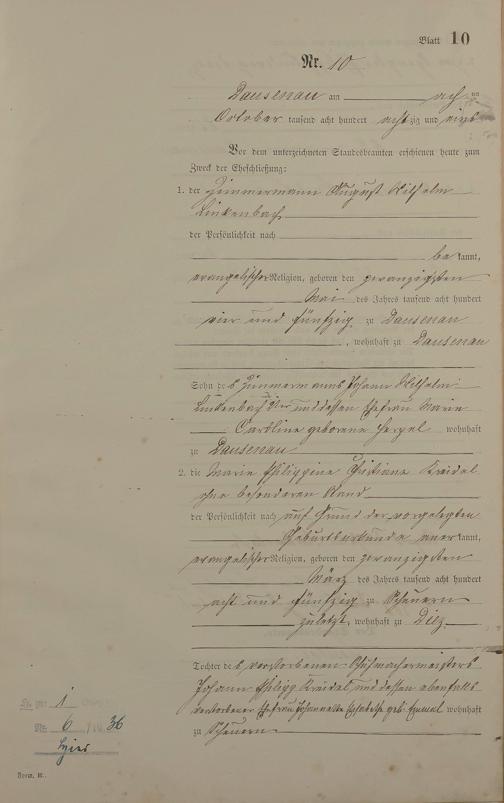 Blatt 10
Nr. 10
Dausenau am acht
October tausend acht hundert achtzig und eins
Vor dem unterzeichneten Standesbeamten erschienen heute zum
Zweck der Eheschließung:
1. der Zimmermann August Wilhelm
Linkenbach
der Persönlichkeit nach
be kannt,
evangelischer Religion, geboren den zwanzigsten
Mai des Jahres tausend acht hundert
vier und fünfzig zu Dausenau
, wohnhaft zu Dausenau
Sohn des Zimmermanns Johann Wilhelm
Linkenbach und dessen Ehefrau Marie
Caroline geborene Hergel wohnhaft
zu Dausenau
2. die Marie Philippine Christiane Kreidel
ohne besonderen Stand
der Persönlichkeit nach auf Grund der vorgelegten
Geburtsurkunde aner kannt,
evangelischer Religion, geboren den zwanzigsten
März des Jahres tausend acht hundert
acht und fünfzig zu Scheuern
zuletzt, wohnhaft zu Diez
Tochter des verstorbenen Schuhmachermeisters
Johann Philipp Kreidel und dessen ebenfalls
verstorbener Ehefrau Johannette Elisabethe geb. wohnhaft
zu Scheuern
1
Nr. 6 36
Form. B.